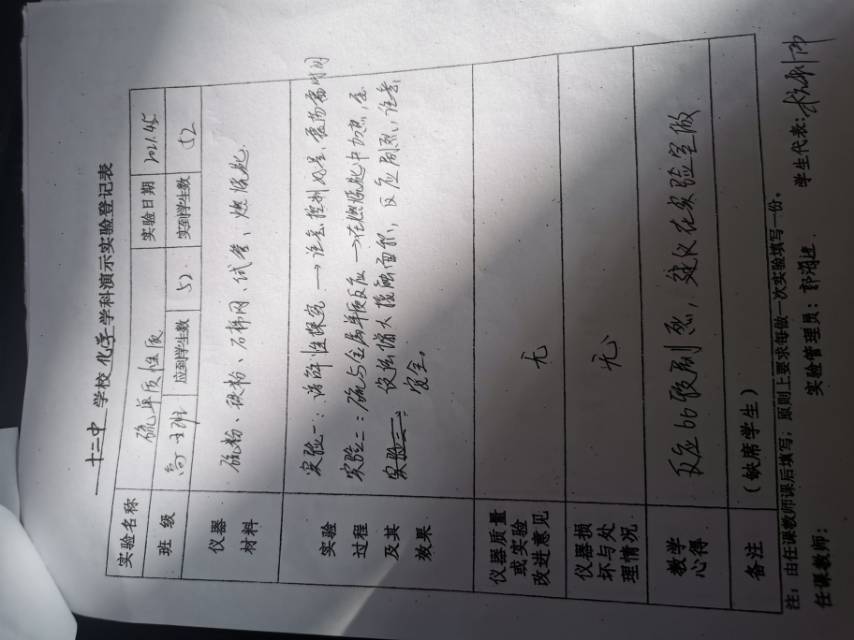 十二中 学校 化学 学科演示实验登记表
实验名称 硫单质性质 实验日期 2021.4.5
班 级 高 班 应到学生数 52 实到学生数 52
仪器材料 硫粉、铁粉、石棉网、试管、燃烧匙
实验过程及其效果
实验一：溶解性探究 → 注意控制 量、震荡
实验二：硫与金属单质反应 → 在燃烧匙中加热，
实验三 增大接触面积，反应剧烈，注意
安全。
仪器质量或实验改进意见 无
仪器损坏与处理情况 无
教学心得 反应比较剧烈，建议在实验室做
备注 （缺席学生）
注：由任课教师课后填写；原则上要求每做一次实验填写一份。
任课教师： 实验管理员： 学生代表：